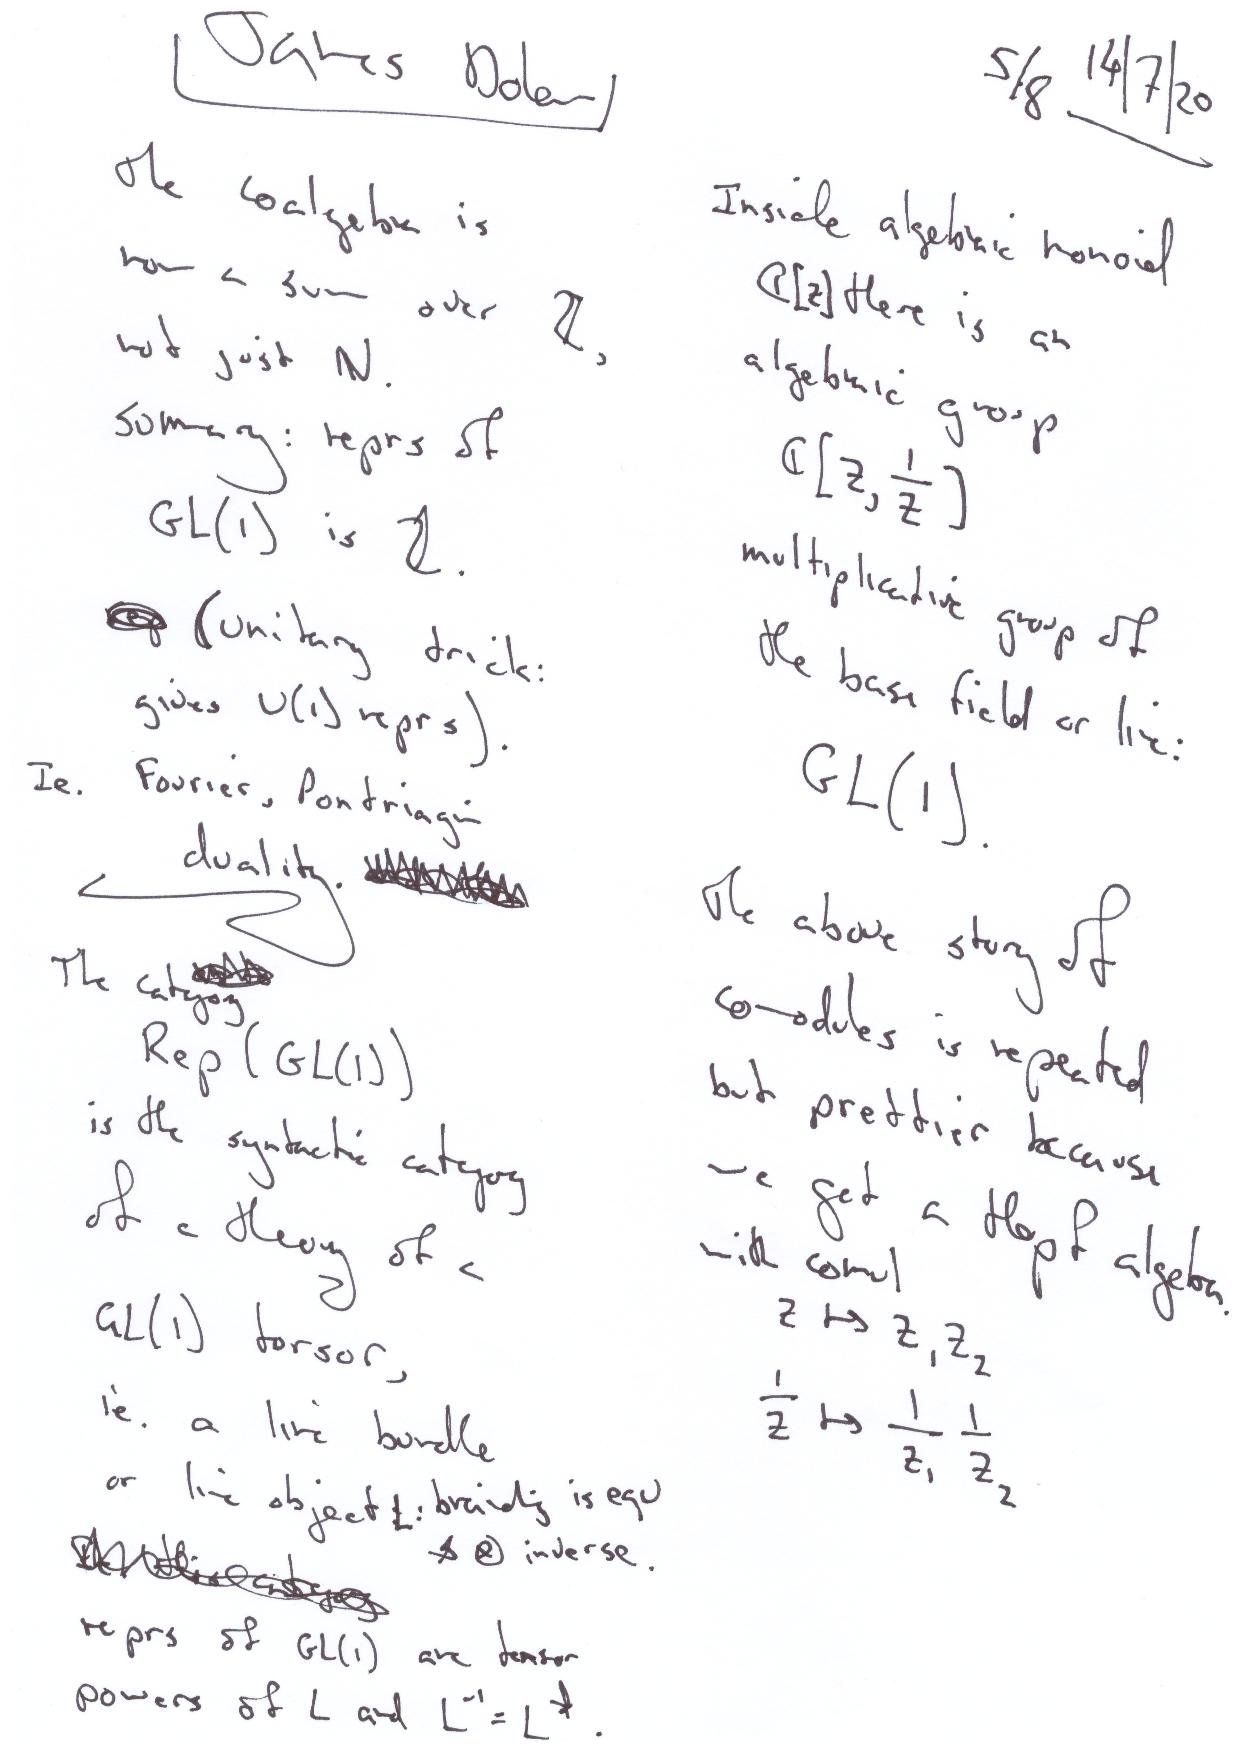 James Dolan
5/8 14/7/20
The coalgebra is
now a sum over ℤ,
not just ℕ.
Summary: reprs of
GL(1) is ℤ.
(Unitary trick:
gives U(1) reprs).
Ie. Fourier, Pontriagin
duality.
The category
Rep(GL(1))
is the syntactic category
of a theory of a
GL(1) torsor,
ie. a line bundle
or line object L: braiding is equ
& ⊗ inverse.
reprs of GL(1) are tensor
powers of L and L⁻¹ = L*.
Inside algebraic monoid
ℂ[z] there is an
algebraic group
ℂ[z, 1/z]
multiplicative group of
the base field or line:
GL(1).
The above story of
comodules is repeated
but prettier because
we get a Hopf algebra.
with comul
z ↦ z₁z₂
1/z ↦ 1/z₁ 1/z₂